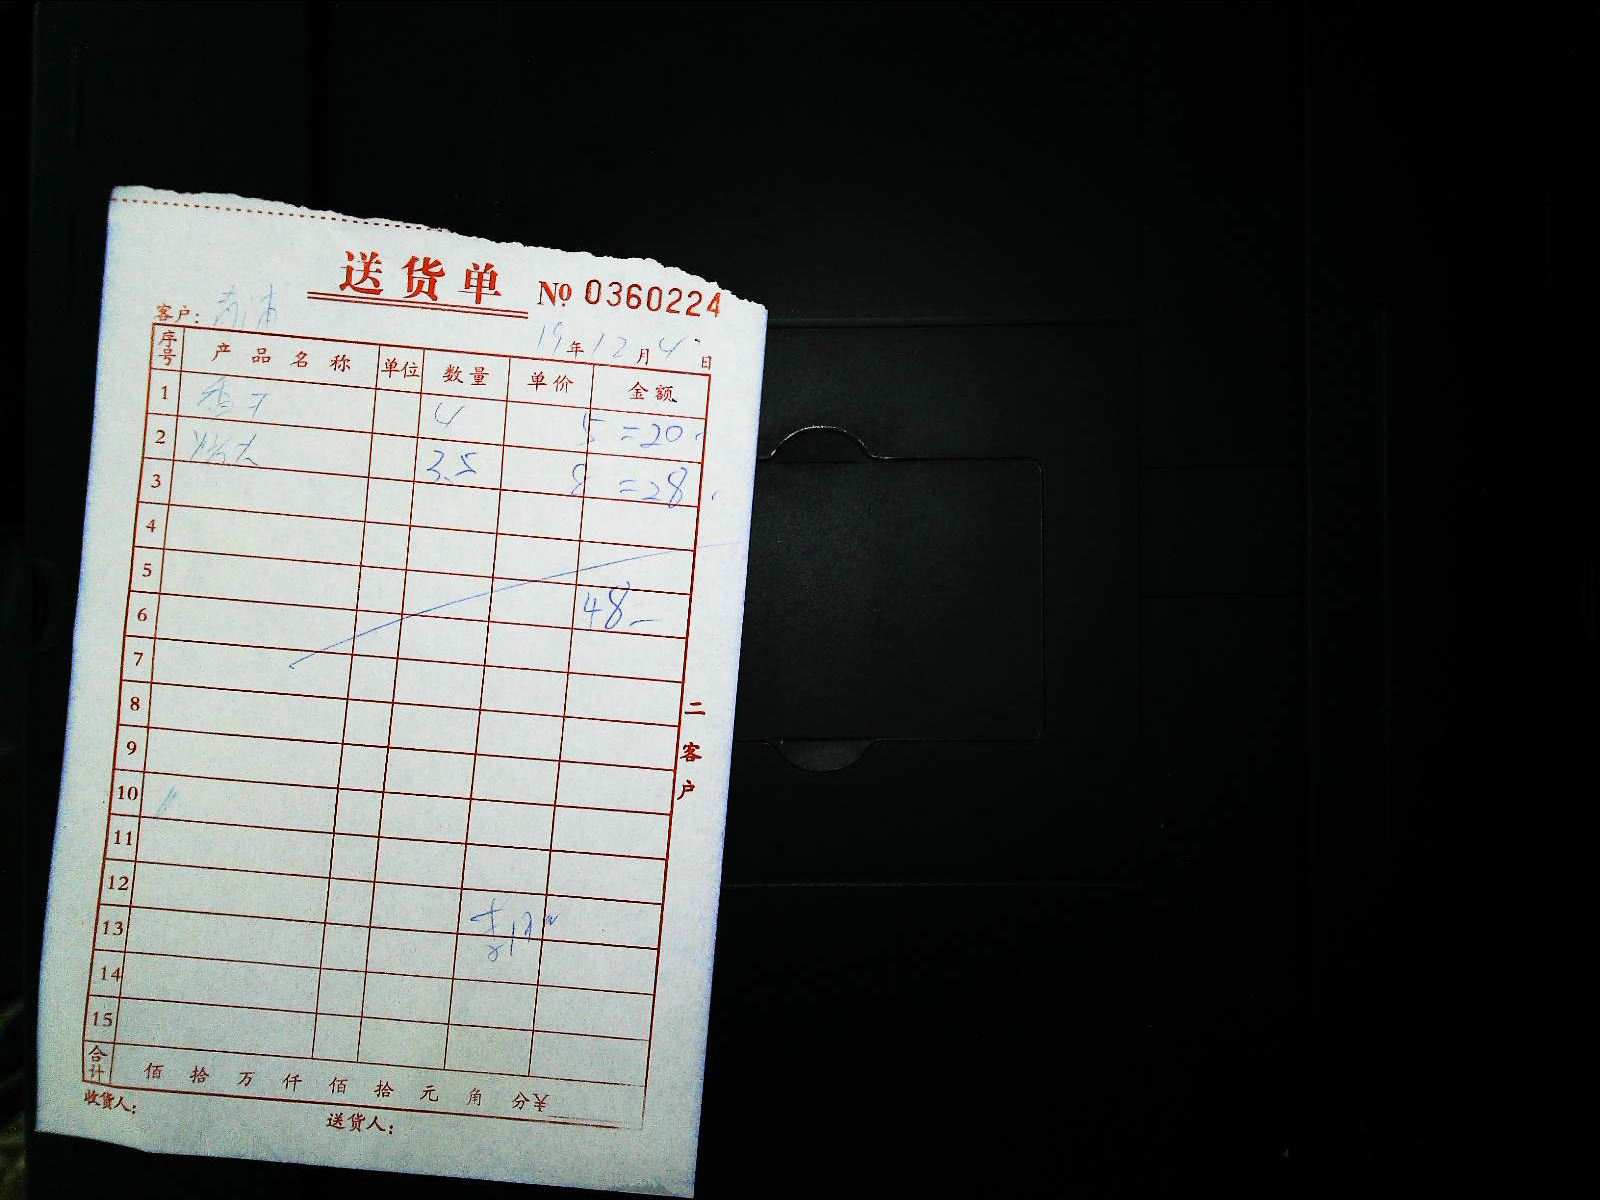 送货单 № 0360224
客户: 青浦
19年12月4日
序号 产品名称 单位 数量 单价 金额
1 香干 4 5 =20.
2 3.5 8 =28.
3
4
5
6 48-
7
8
9
10
11
12
13
14
15
合计 佰 拾 万 仟 佰 拾 元 角 分 ¥
收货人: 送货人:
二客户